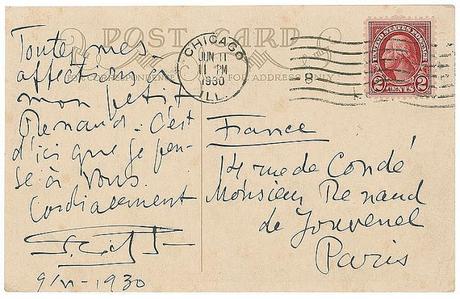 POST CARD
CHICAGO
JUN 11
11 PM
1930
ILL.
8
UNITED STATES POSTAGE
2 CENTS 2
Toutes mes
affections
mon petit
Renaud. C'est
d'ici que je pen-
se à vous
Cordialement
9/VI - 1930
FOR ADDRESS ONLY
France
14 rue de Condé
Monsieur Renaud
de Jouvenel
Paris